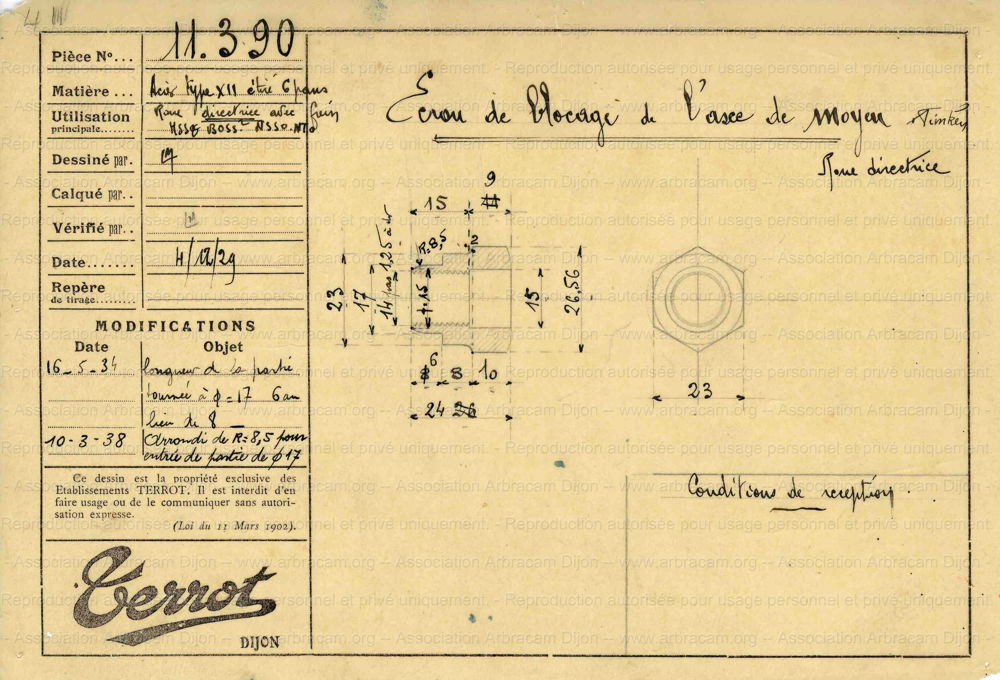 11.3.90
Pièce N°...
Matière... Acier type XII étiré 6 pans
Utilisation Roue directrice avec frein
principale........ HSSE BOSS. NSSO. NTO
Dessiné par.
Calqué par..
Vérifié par..
Date....... 4/12/29
Repère
de tirage........
MODIFICATIONS
Date Objet
16-5-34 longueur de la partie
tournée à φ=17 6 au
lieu de 8
10-3-38 Arrondi de R=8,5 pour
entrée de partie de φ17
Ce dessin est la propriété exclusive des
Etablissements TERROT. Il est interdit d'en
faire usage ou de le communiquer sans autori-
sation expresse.
(Loi du 11 Mars 1902).
Terrot
DIJON
Ecrou de blocage de l'axe de moyeu Timken
Roue directrice
9
15
R=8,5
2
23
17
14 pas 1,25 à dr
15
15
26,56
6
8 8 10
24 26
23
Conditions de reception
Association Arbracam Dijon – www.arbracam.org
Reproduction autorisée pour usage personnel et privé uniquement.